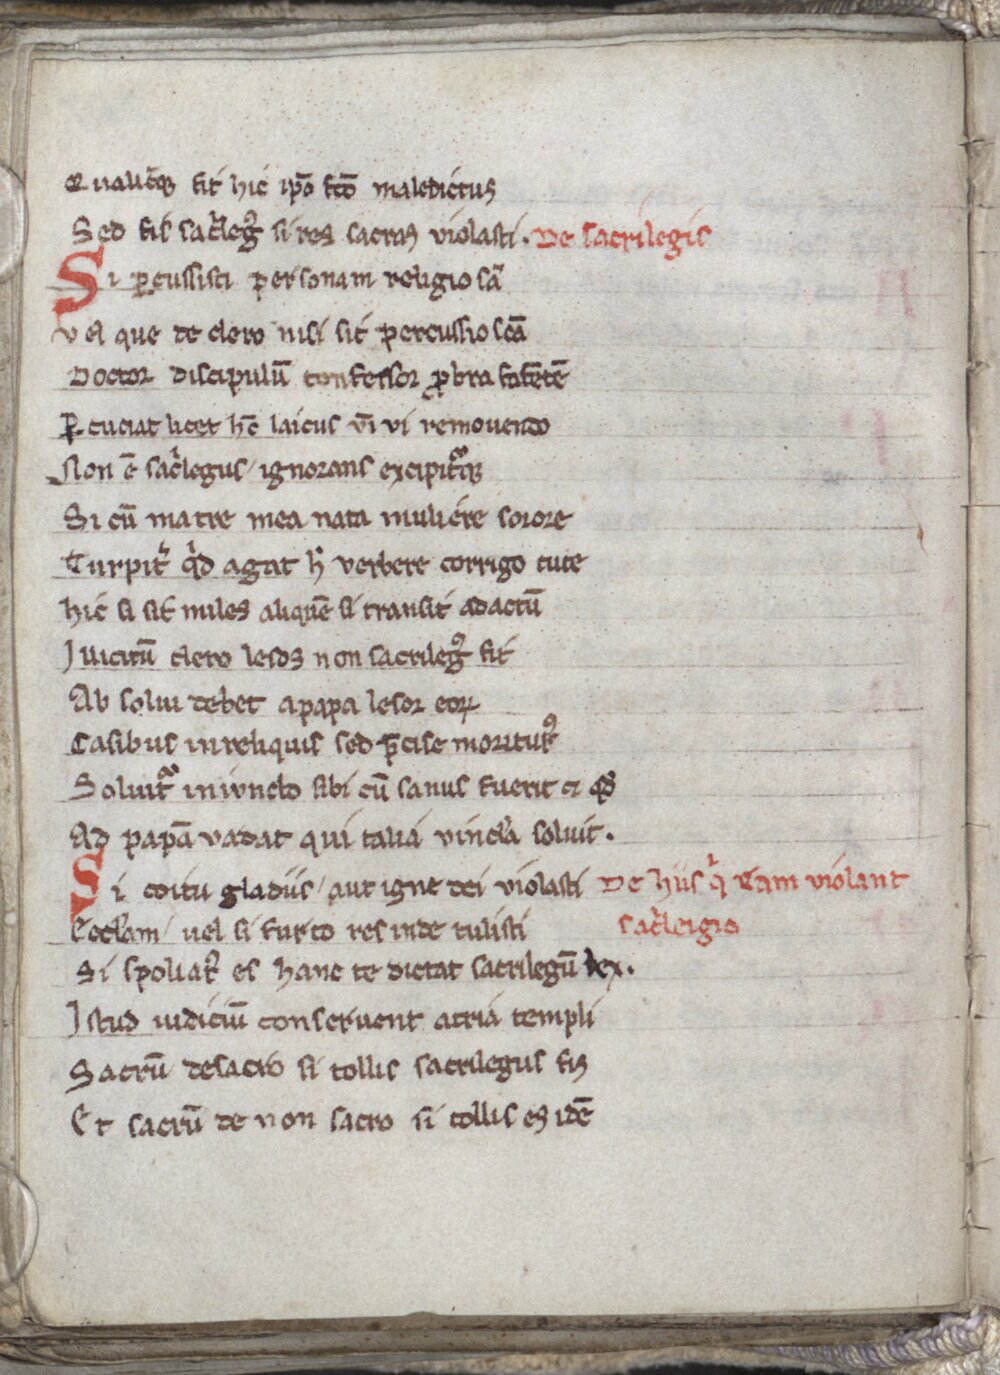 Qualicūq fit hic ip̄o fc̄o maledictus
Sed fis sac̓legꝰ si res sacras violasti. De sacrilegis
Si ꝑcussisci personam religiosā
vel que de clero nisi sit percussio scā
Doctor discipulū confessor ꝓbra fatētē
Ꝑcuciat licet hͨ laicus vī vi remouendo
Non ē sac̓legus / ignorans excipitᷣq
Si cū matre mea nata muliere sorore
Turpit̓ qͥd agat hͨ verbere corrigo tute
hic si sit miles aliquē si transit ad actū
Illicitū clero lesus non sacrilegꝰ fit
Ab solui debet a papa lesor eoꝝ
Casibus in reliquis sed p̄cise moriturꝰ
Soluitᷣ iniuncto sibi cū sanus fuerit ⁊ qd̓
Ad papā vadat qui talia vincla soluit.
Si coitu gladiis / aut igne dei violasti De hiis qͥ eccam violant
Eccl̄am / uel si furto res inde tulisti sac̓leigio
Si spoliat̓ es hanc te dictat sacrilegū lex.
Istud iudiciū conseruent atria templi
Sacrū de sacro si tollis sacrilegus fis
Et sacrū de non sacro si tollis es idē